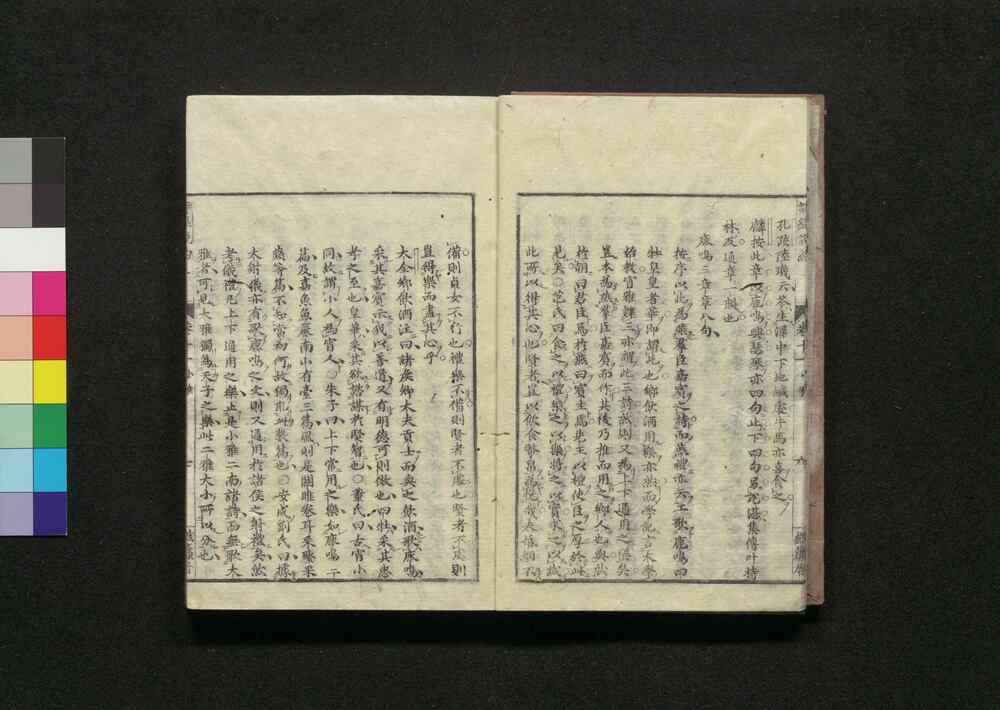 孔疏陸璣云苓生澤中下地鹹處牛馬亦喜食之
麟按此章以鹿鳴興瑟琴亦四句止下四句另說諶集傳叶持
林反通章一韻也
鹿鳴三章章八句
按序以此為燕羣臣嘉賓之詩而燕禮亦云工歌鹿鳴四
牡皇皇者華即謂此也鄉飲酒用樂亦然而學記言大學
始教宵雅肄三亦謂此三詩然則又為上下通用之樂矣
豈本為燕羣臣嘉賓而作其後乃推而用之鄉人也與然
於朝曰君臣焉於燕曰賓主焉先王以禮使臣之厚於此
見矣○范氏曰食之以禮樂之以樂將之以實求之以誠
此所以得其心也賢者豈以飲食幣帛為悅哉夫婚姻不
備則貞女不行也禮樂不備則賢者不處也賢者不處則
豈得樂而盡其心乎
大全鄉飲酒注曰諸侯鄉大夫貢士而與之飲酒歌鹿鳴
采其嘉賓示我以善道又有明德可則傚也四牡采其忠
孝之至也皇華采其欲諮謀於賢智也○董氏曰古宵小
同故謂小人為宵人○朱子曰上下常用之樂如鹿鳴三
篇及嘉魚魚麗南山有臺三篇風則是關雎卷耳采蘩采
蘋等篇不知當初何故獨取此數篇也○安成劉氏曰據
大射儀亦有歌鹿鳴之文則又通用於諸侯之射禮矣然
考儀禮凡上下通用之樂止是小雅二南諸詩而無歌大
雅者可見大雅獨為天子之樂此二雅大小所以分也